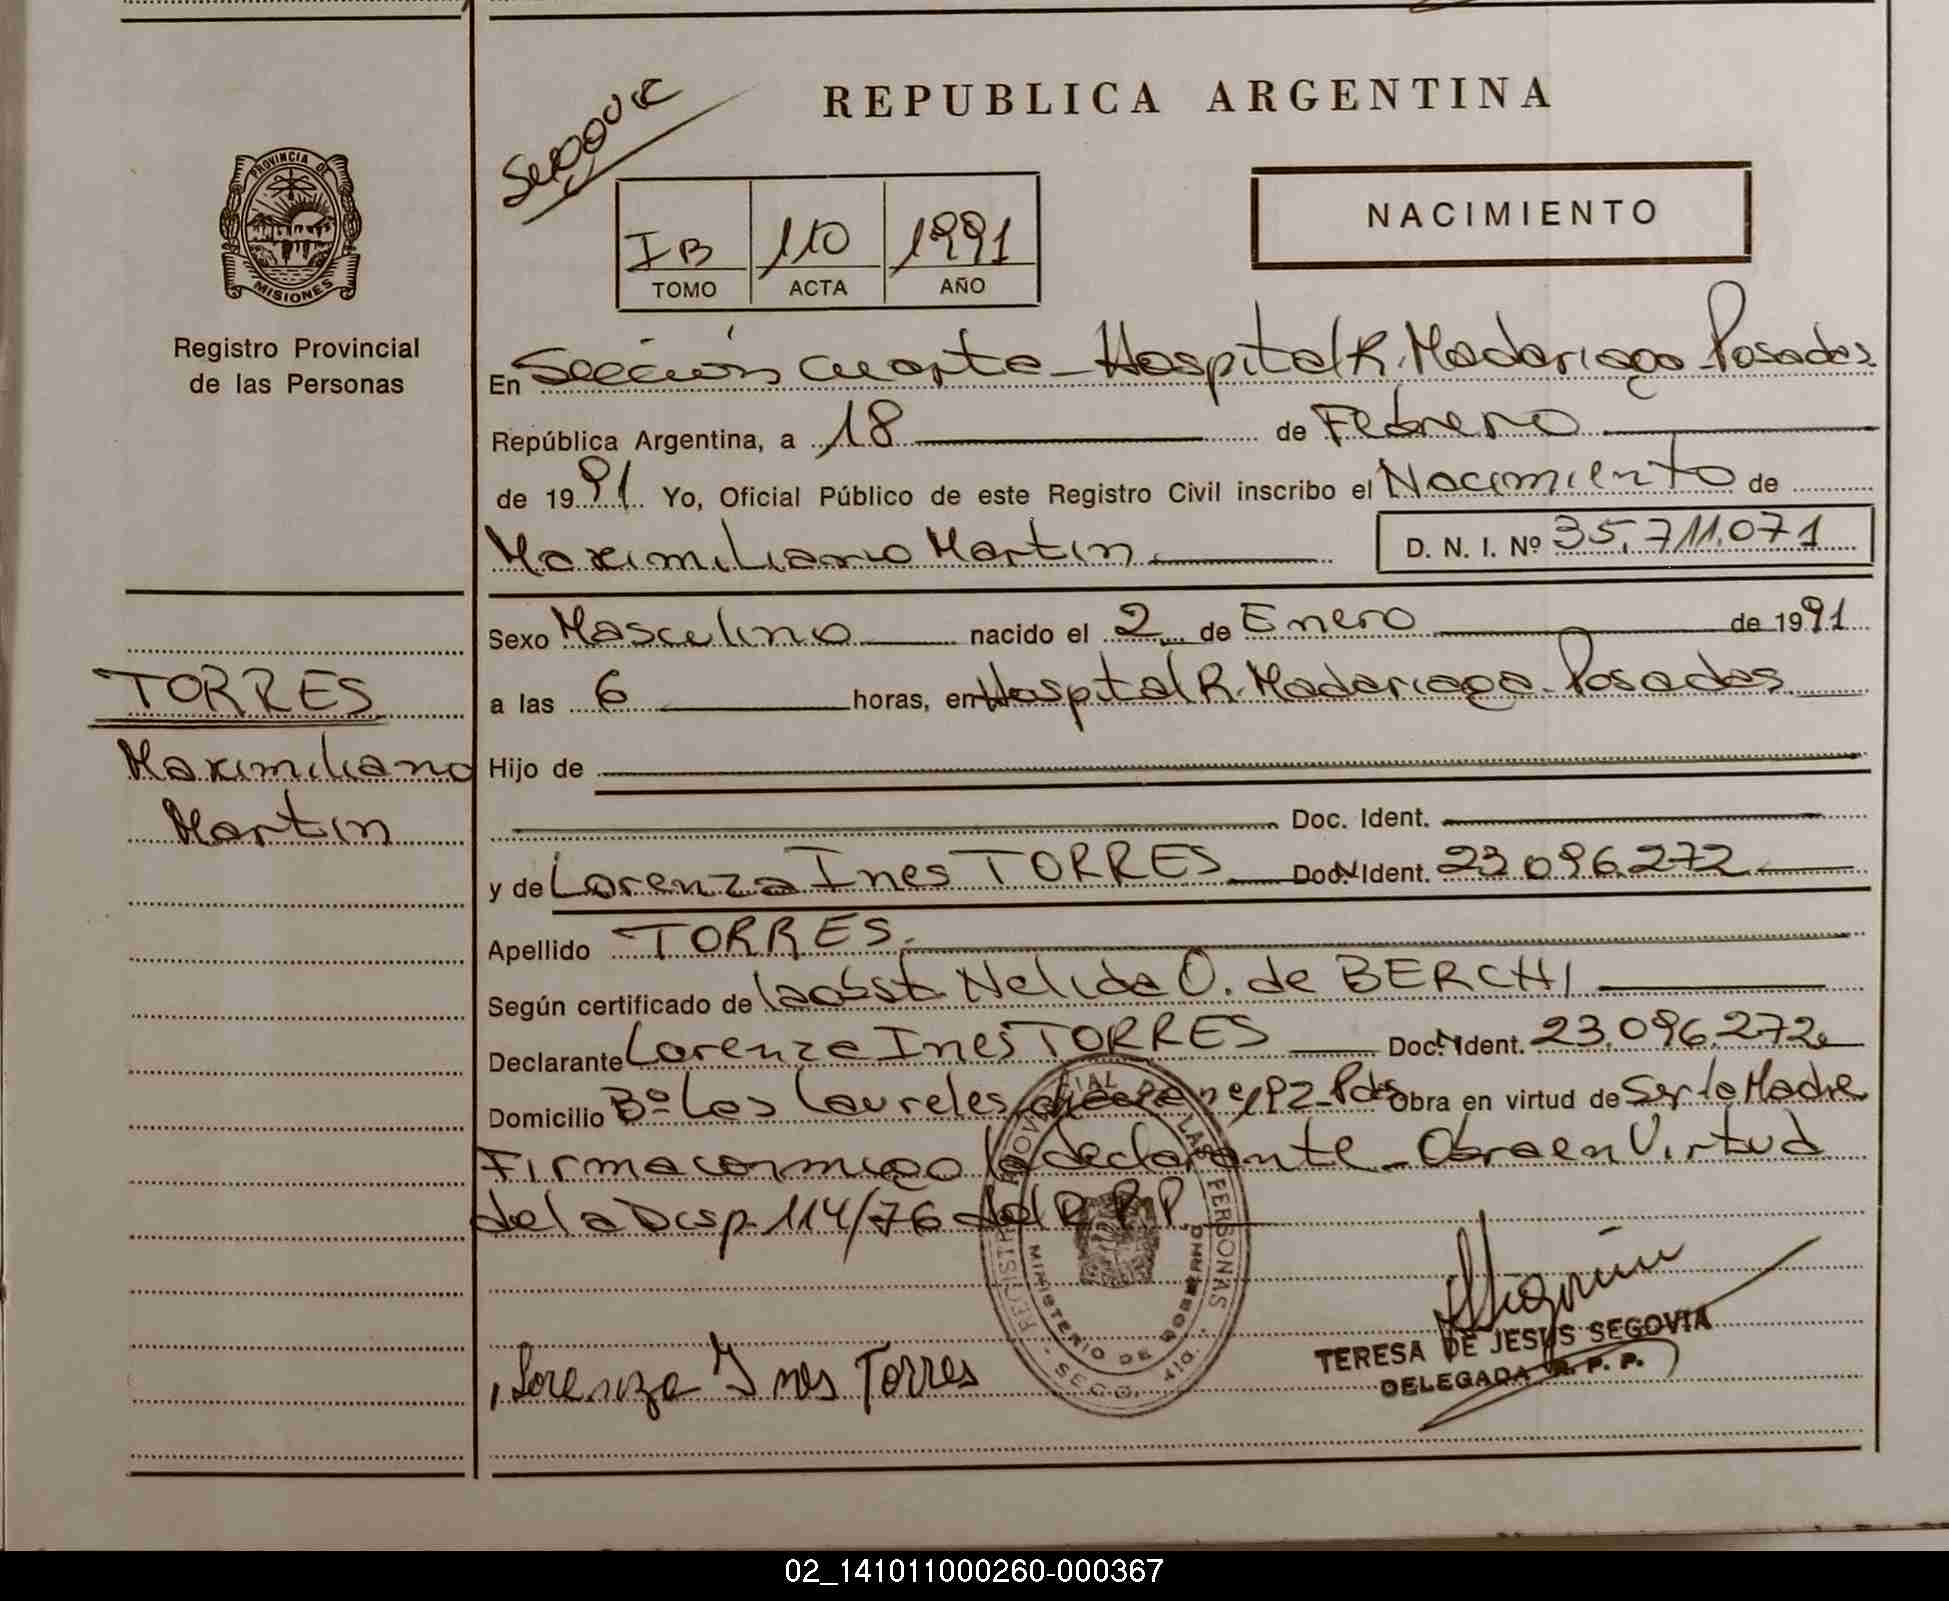 REPUBLICA ARGENTINA
PROVINCIA DE
MISIONES
Registro Provincial
de las Personas
NACIMIENTO
IB 110 1991
TOMO ACTA AÑO
En Sección Cuarta - Hospital R. Madariaga - Posadas
República Argentina, a 18 de Febrero
de 1991 Yo, Oficial Público de este Registro Civil inscribo el Nacimiento de
Maximiliano Martin D. N. I. Nº 35,711,071
Sexo Masculino nacido el 2 de Enero de 1991
a las 6 horas, en Hospital R. Madariaga - Posadas
TORRES
Maximiliano
Martin
Hijo de
Doc. Ident.
y de Lorenza Ines TORRES Doc. Ident. 23.096.272
Apellido TORRES
Según certificado de la obst. Nelida O. de BERCHI
Declarante Lorenza Ines TORRES Doc. Ident. 23.096.272
Domicilio Bº Los Laureles Obra en virtud de Ser la Madre
Firma conmigo la declarante - Obra en Virtud
de la Disp. 114/76 del R.P.P.
REGISTRO PROVINCIAL DE LAS PERSONAS
MINISTERIO DE GOBIERNO
Lorenza Ines Torres
TERESA DE JESUS SEGOVIA
DELEGADA R. P. P.
02_141011000260-000367